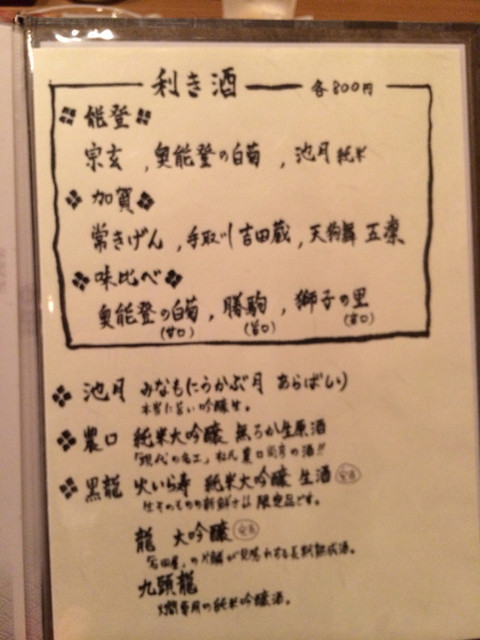 利き酒 各800円
能登
宗玄、奥能登の白菊、池月純米
加賀
常きげん、手取川吉田蔵、天狗舞 五凛
味比べ
奥能登の白菊、勝駒、獅子の里
(甘口) (旨口)
池月 みなもにうかぶ月 あらばしり
農口 純米大吟醸 無ろか生原酒
「現代の名工」 農口 の酒!!
黒龍 火いら寿 純米大吟醸 生酒
生そのものの新鮮さ 限定品です。
龍 大吟醸
長期熟成酒。
九頭龍
燗専用の純米吟醸酒。